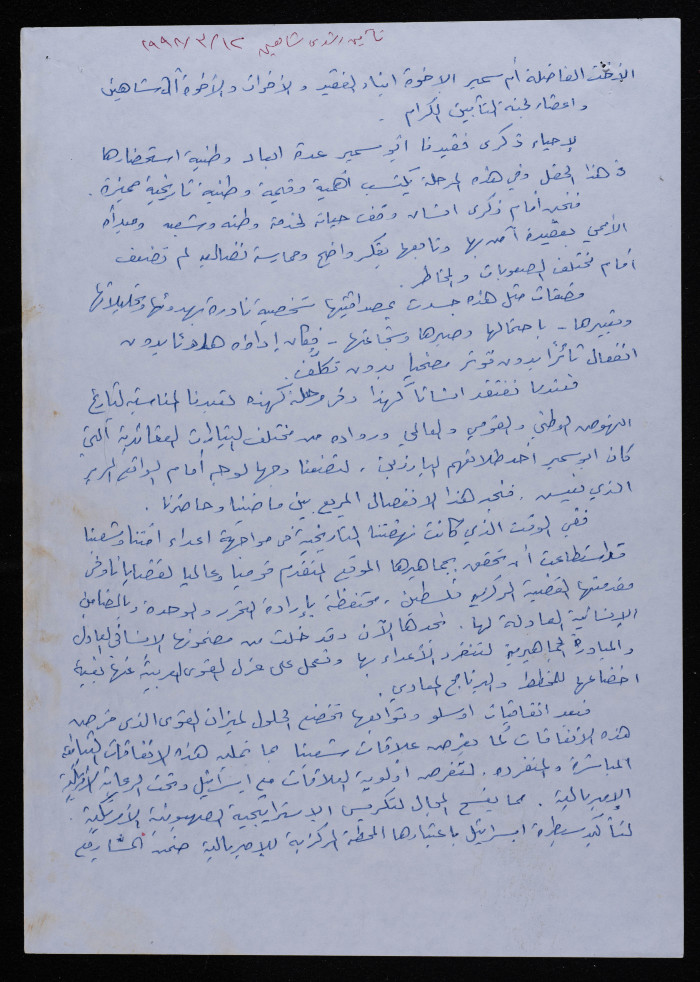 تأبين رشدي شاهين ١٢/٣/١٩٩٨
الأخت الفاضلة أم سمير الإخوة ابناء الفقيد والأخوات والأخوة آل شاهين
واعضاء لجنة التأبين الكرام .
لإحياء ذكرى فقيدنا ابو سمير عدة ابعاد وطنية استحضارها
في هذا الحفل وفي هذه المرحلة يكتسب أهمية وقيمة وطنية تاريخية مميزة .
فنحن أمام ذكرى انسان وقف حياته لخدمة وطنه وشعبه ومبدأه
الأممي بعقيدة آمن بها وتابعها بفكر واضح وممارسة نضالية لم تضعف
أمام مختلف الصعوبات والمخاطر .
فصفات مثل هذه جسدت بمصداقيتها شخصية نادرة بهدوئها وتحليلاتها
وتعبيرها - باحتمالها وصبرها وشجاعتها - فكان إداؤه هادئا بدون
انفعال ثائرا بدون توتر مضحيا بدون تكلف .
فعندما نفتقد انسانا كهذا وفي مرحلة كهذه تعيدنا المناسبة لتاريخ
النهوض الوطني والقومي والعالمي ورواده من مختلف التيارات العقائدية التي
كان ابو سمير أحد طلائعهم البارزين ، لتضعنا وجها لوجه أمام الواقع المرير
الذي نعيش . فنجد هذا الانفصال المريع بين ماضينا وحاضرنا .
ففي الوقت الذي كانت نهضتنا التاريخية في مواجهة اعداء امتنا وشعبنا
قد استطاعت أن تحقق بجماهيرها الموقع المتقدم قوميا وعالميا لقضايانا وفي
مقدمتها القضية المركزية فلسطين ، محتفظة بإرادة التحرر والوحدة وبالمضامين
الإنسانية العادلة لها . نجدها الآن وقد خلت من مضمونها الإنساني العادل
والمبادرة الجماهيرية لتنفرد الأعداء بها وتعمل على عزل القوى العربية عنها بغية
اخضاعها للخطط والبرنامج المعادي .
فبعد اتفاقيات اوسلو وتوابعها تخضع الحلول لميزان القوى الذي فرض
هذه الاتفاقات كما يفرض علاقات شعبنا بما تمليه هذه الاتفاقات الثنائية
المباشرة والمنفردة . لتفرض اولوية العلاقات مع اسرائيل وتحت الرعاية الأمريكية
الإمبريالية . مما يفسح المجال لتكريس الإستراتيجية الصهيونية الأمريكية .
لتأكيد سيطرة اسرائيل باعتبارها المحطة المركزية للإمبريالية ضمن المشاريع